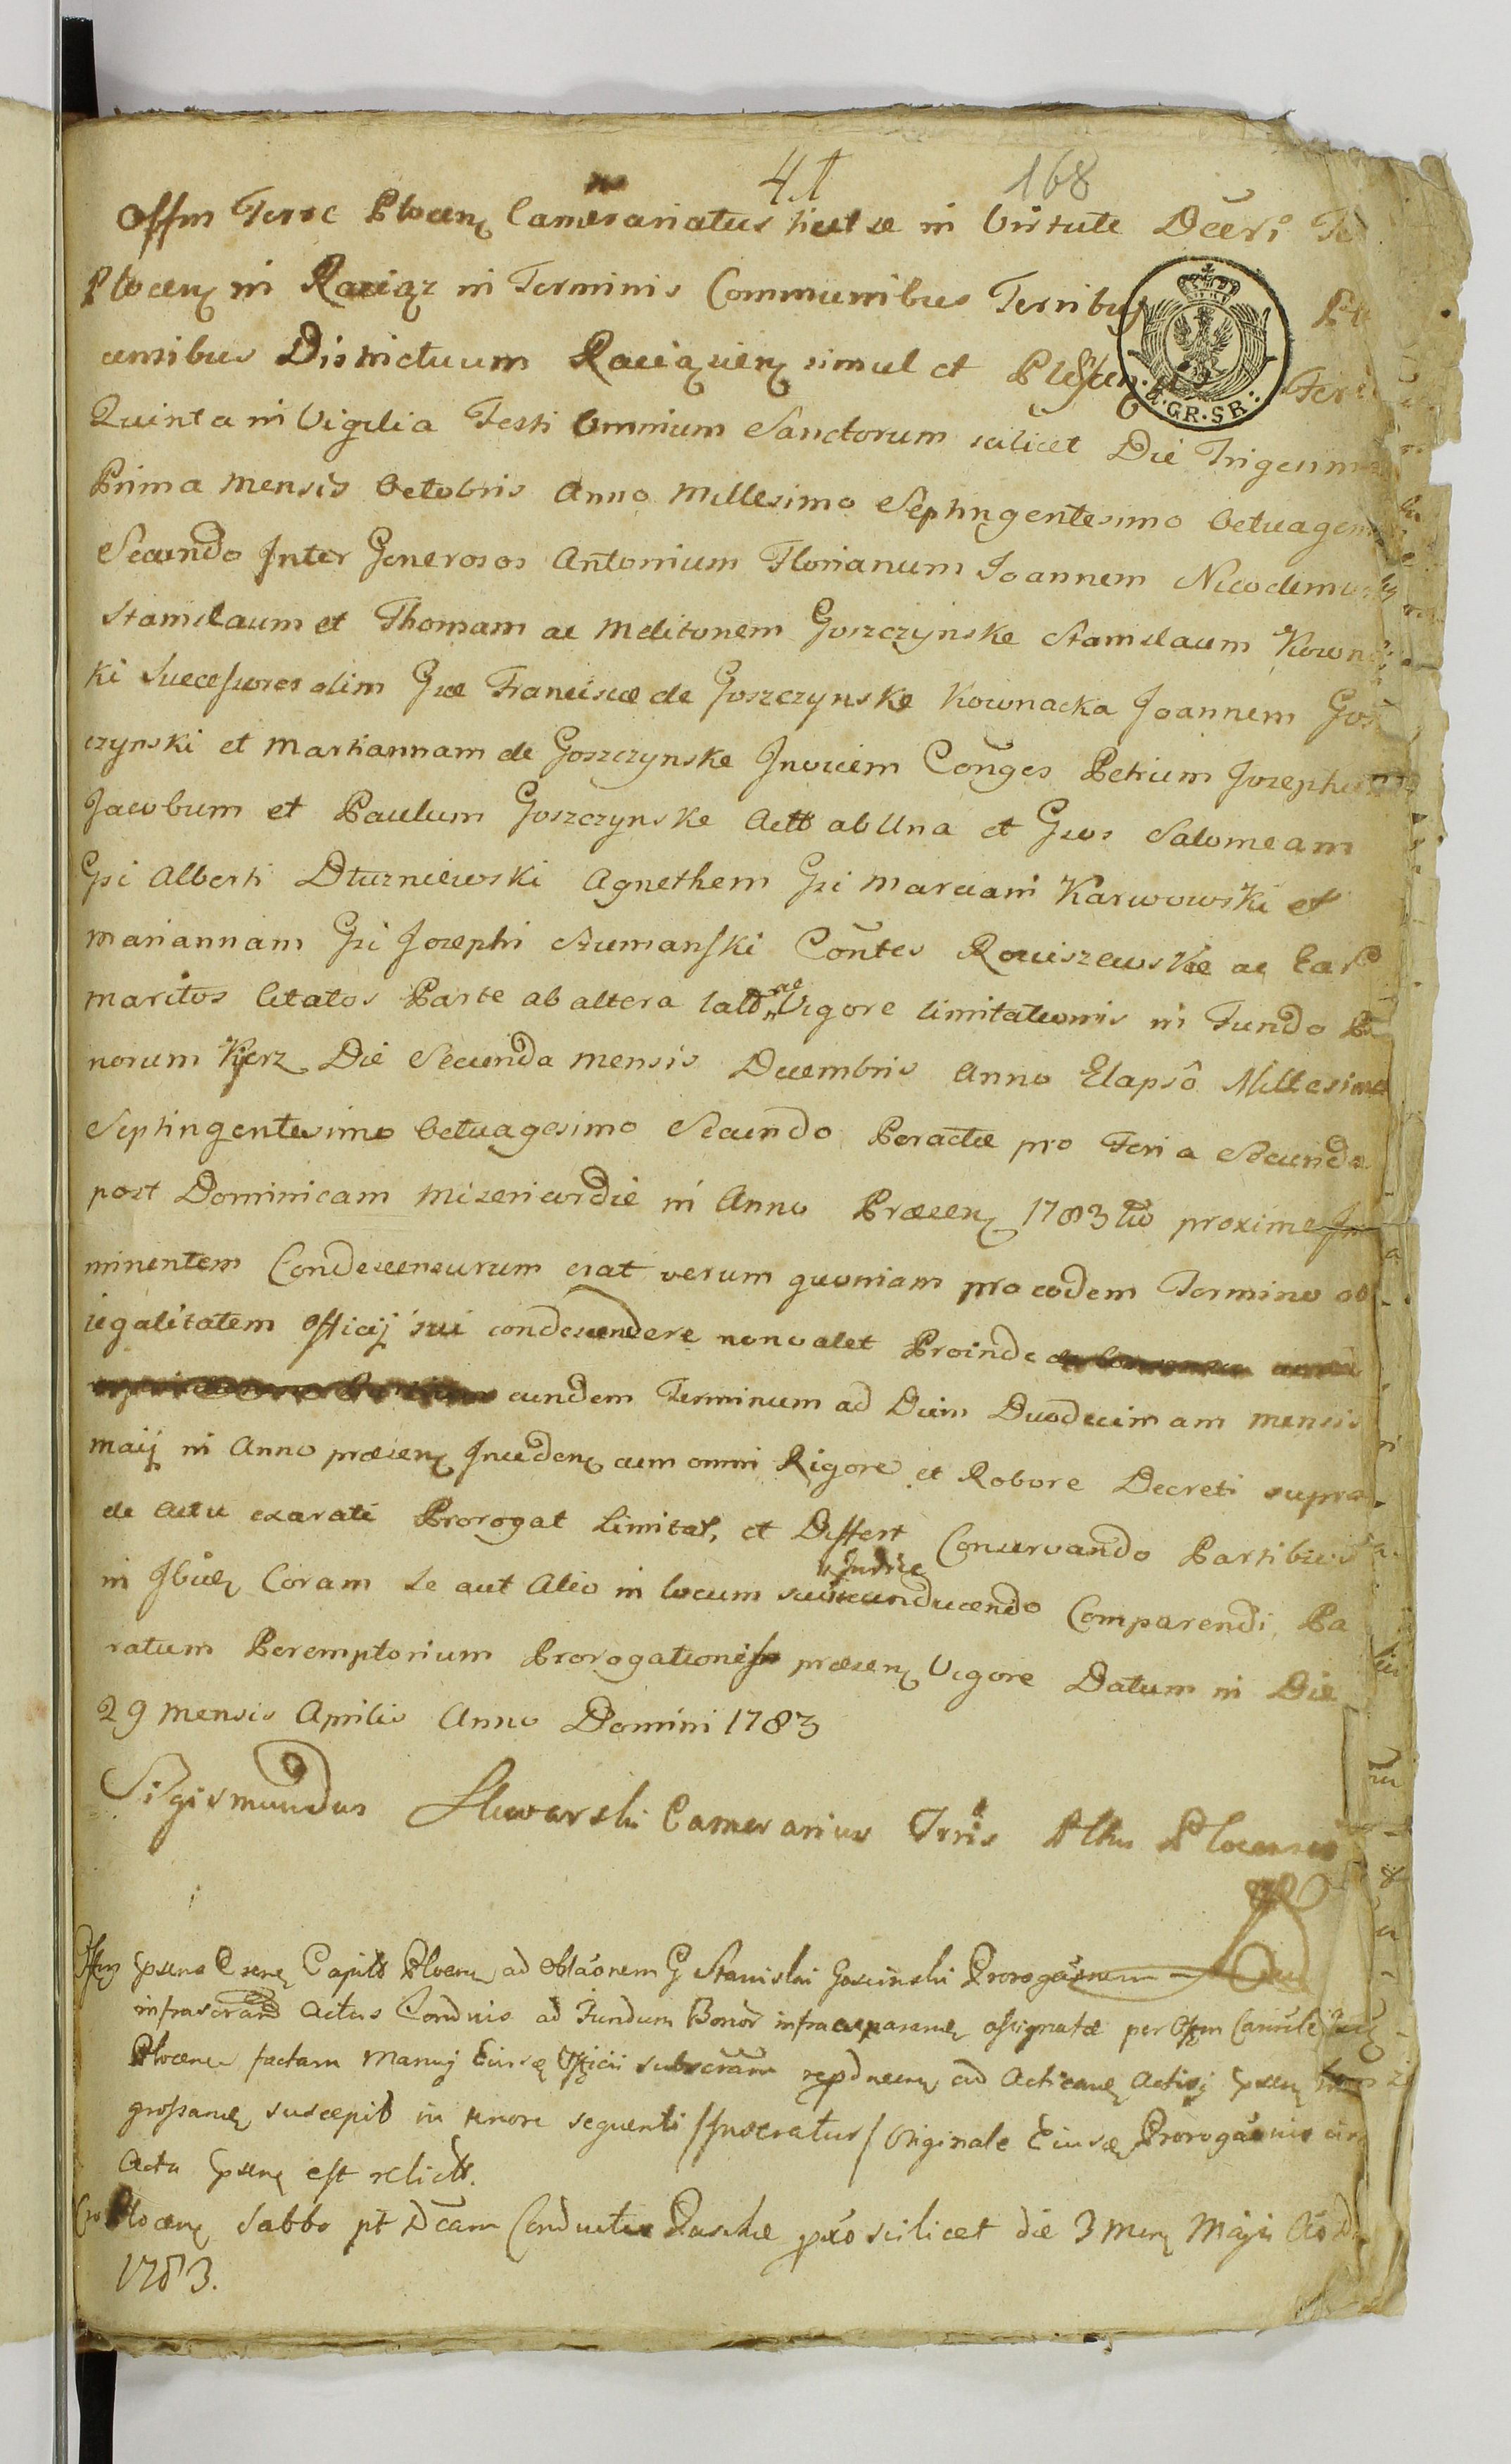 41 168
Offm Terrae Plocen Camerariatus licet se in Virtute Decri
Plocen in Raciąz in Terminis Communibus Terribus
censibus Districtuum Raciązien simul et Feria
4.GR.SR.
Quinta in Vigilia Festi Omnium Sanctorum scilicet Die Trigesima
Prima Mensis Octobris Anno Millesimo Septingentesimo Octuagesimo
Secundo Inter Generosos Antonium Florianum Joannem Nicodemum
Stanislaum et Thomam ac Melitonem Goszczynskie Stanislaum Kownac
ki Successores olim Gsae Franciscae de Goszczynskie Kownacka Joannem Gosz
czynski et Mariannam de Goszczynskie Invicem Conges Petrum Josephum
Jacobum et Paulum Goszczynskie Actt ab Una et Gsos Salomeam
Gsi Alberti Dłuzniewski Agnethem Gsi Marciani Karwowski et
Mariannam Gsi Josephi Szumanski Contes Rociszewskie ac Ear
Maritos Citatos Parte ab altera latt ac Vigore limitationis in Fundo Bo
norum Kierz Die Secunda Mensis Decembris Anno Elapsô Millesimo
Septingentesimo Octuagesimo Secundo Peractae pro Feria Secunda
post Dominicam Misericordiae in Anno Praesen 1783tio proxime Im
minentem Condescensurum erat verum quoniam pro eodem Termino ob
legalitatem Officij sui condescendere non valet Proinde
eundem Terminum ad Diem Duodecimam Mensis
Maij in Anno praesen Inciden cum omni Rigore et Robore Decreti supra
de actu exarati Prorogat limitat, et Differt Conservando Partibus
in Ibidem Coram se aut Alio in locum sui Judice conducendo Comparendi, Pa
ratum Peremptorium Prorogationis praesen Vigore Datum in Die
29 Mensis Aprilis Anno Domini 1783
Sigismundus Camerarius Trris Plocensis
Offm psens Csene Capitt Plocen ad oblaonem G Stanislai Goscinski Prorogaonem
infrascram Actus Condnis ad Fundum Bonor infra assignatae per Offm
Plocen factam Manuj Eiusd Officii subscram ad Acticand Actisq psen
grossand suscepit in tenore sequenti /Inseratur/ Originale Eiusd Prorogaonis
Actu psen est relictt.
Plocen Sabbo pt Dcam Conductus Paschae pxo scilicet die 3 Men Maji Ao D
1783.